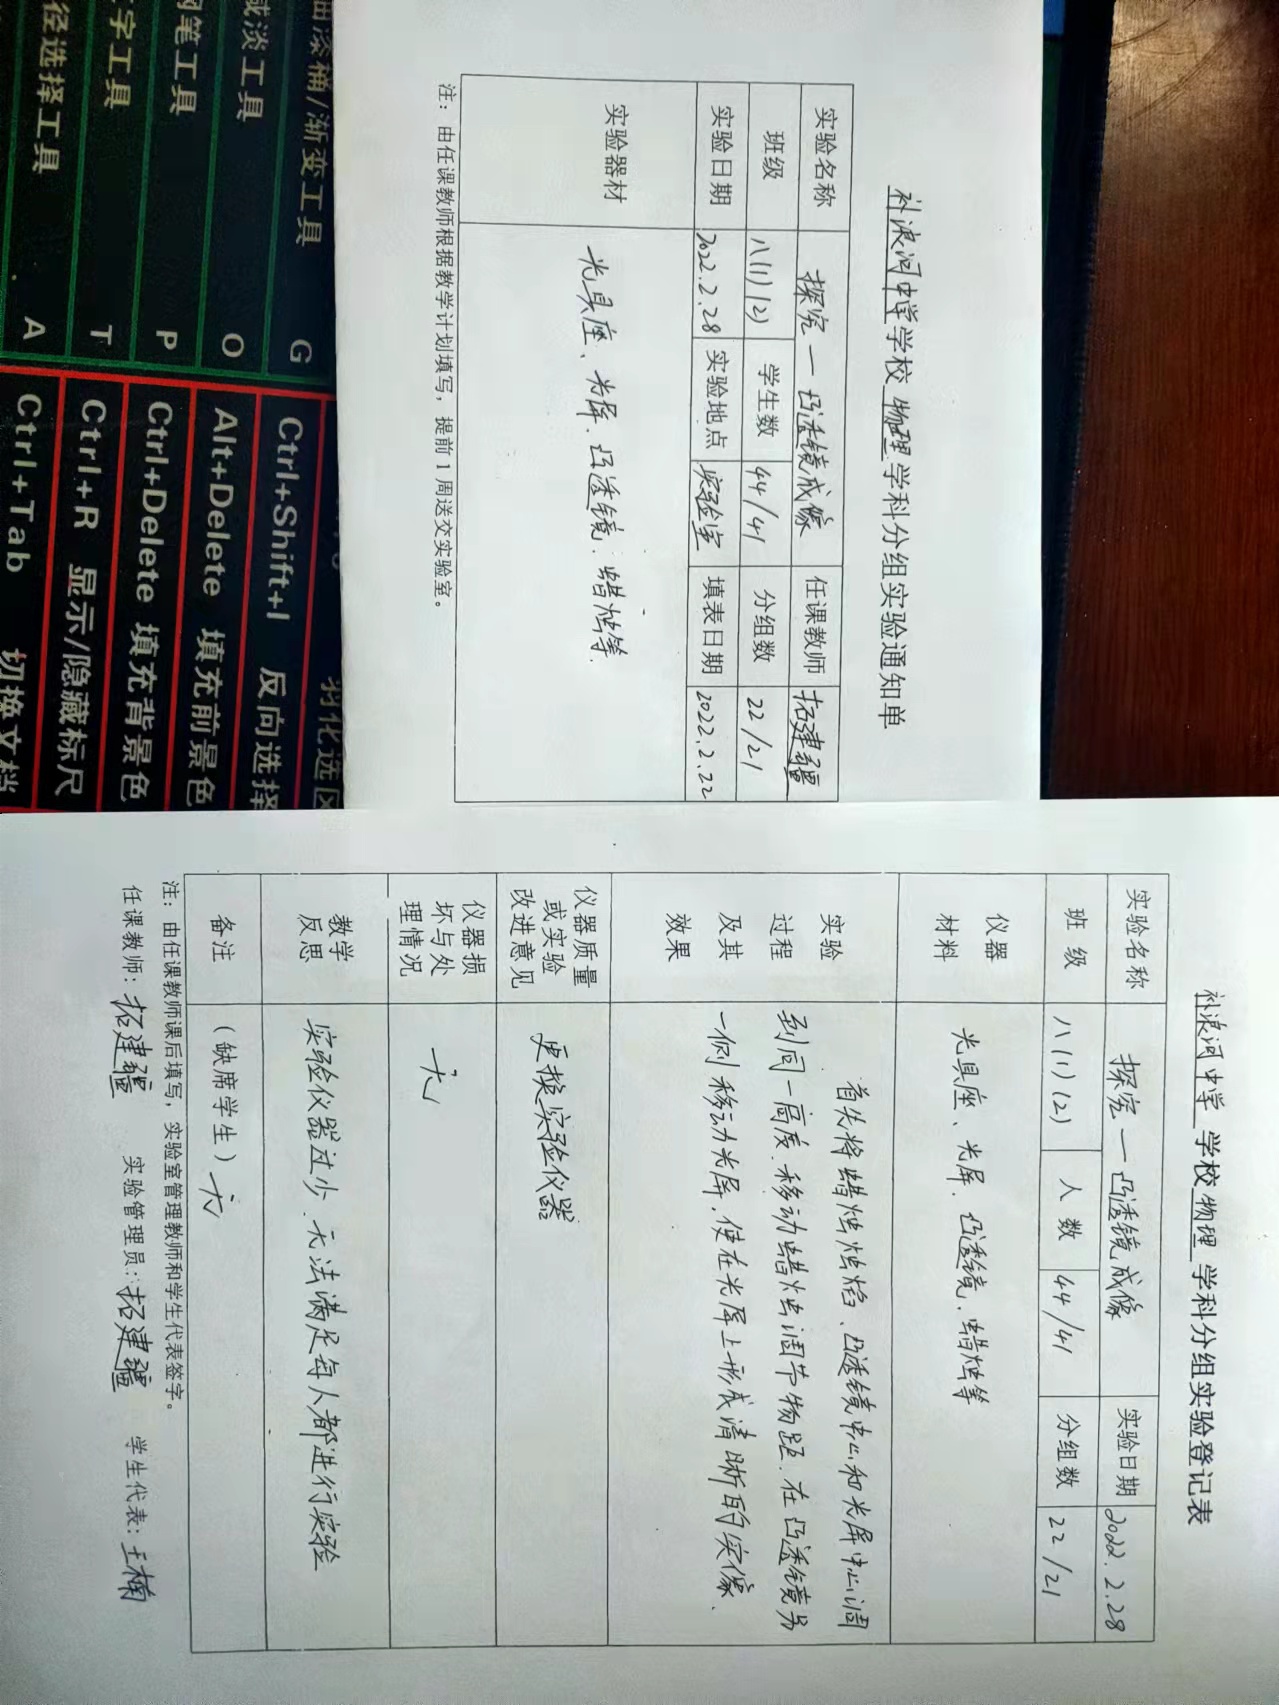 补浪河中学学校 物理 学科分组实验通知单
实验名称 探究一凸透镜成像 任课教师 拓建疆
班级 八(1)(2) 学生数 44/41 分组数 22/21
实验日期 2022.2.28 实验地点 实验室 填表日期 2022.2.22
实验器材 光具座、光屏、凸透镜、蜡烛等.
注：由任课教师根据教学计划填写，提前1周送交实验室。
补浪河中学 学校 物理 学科分组实验登记表
实验名称 探究一凸透镜成像 实验日期 2022.2.28
班级 八(1)(2) 人数 44/41 分组数 22/21
仪器
材料
光具座、光屏、凸透镜、蜡烛等
实验
过程
及其
效果
首先将蜡烛烛焰、凸透镜中心和光屏中心调
到同一高度.移动蜡烛调节物距.在凸透镜另
一侧移动光屏.使在光屏上形成清晰的实像.
仪器质量
或实验
改进意见
更换实验仪器
仪器损
坏与处
理情况
无
教学
反思
实验仪器过少.无法满足每人都进行实验
备注 （缺席学生）无
注：由任课教师课后填写，实验室管理教师和学生代表签字。
任课教师：拓建疆 实验管理员：拓建疆 学生代表：王楠
油漆桶/渐变工具 G
减淡工具 O
钢笔工具 P
字工具 T
径选择工具 A
羽化选区
Ctrl+Shift+I 反向选择
Alt+Delete 填充前景色
Ctrl+Delete 填充背景色
Ctrl+R 显示/隐藏标尺
Ctrl+Tab 切换文档